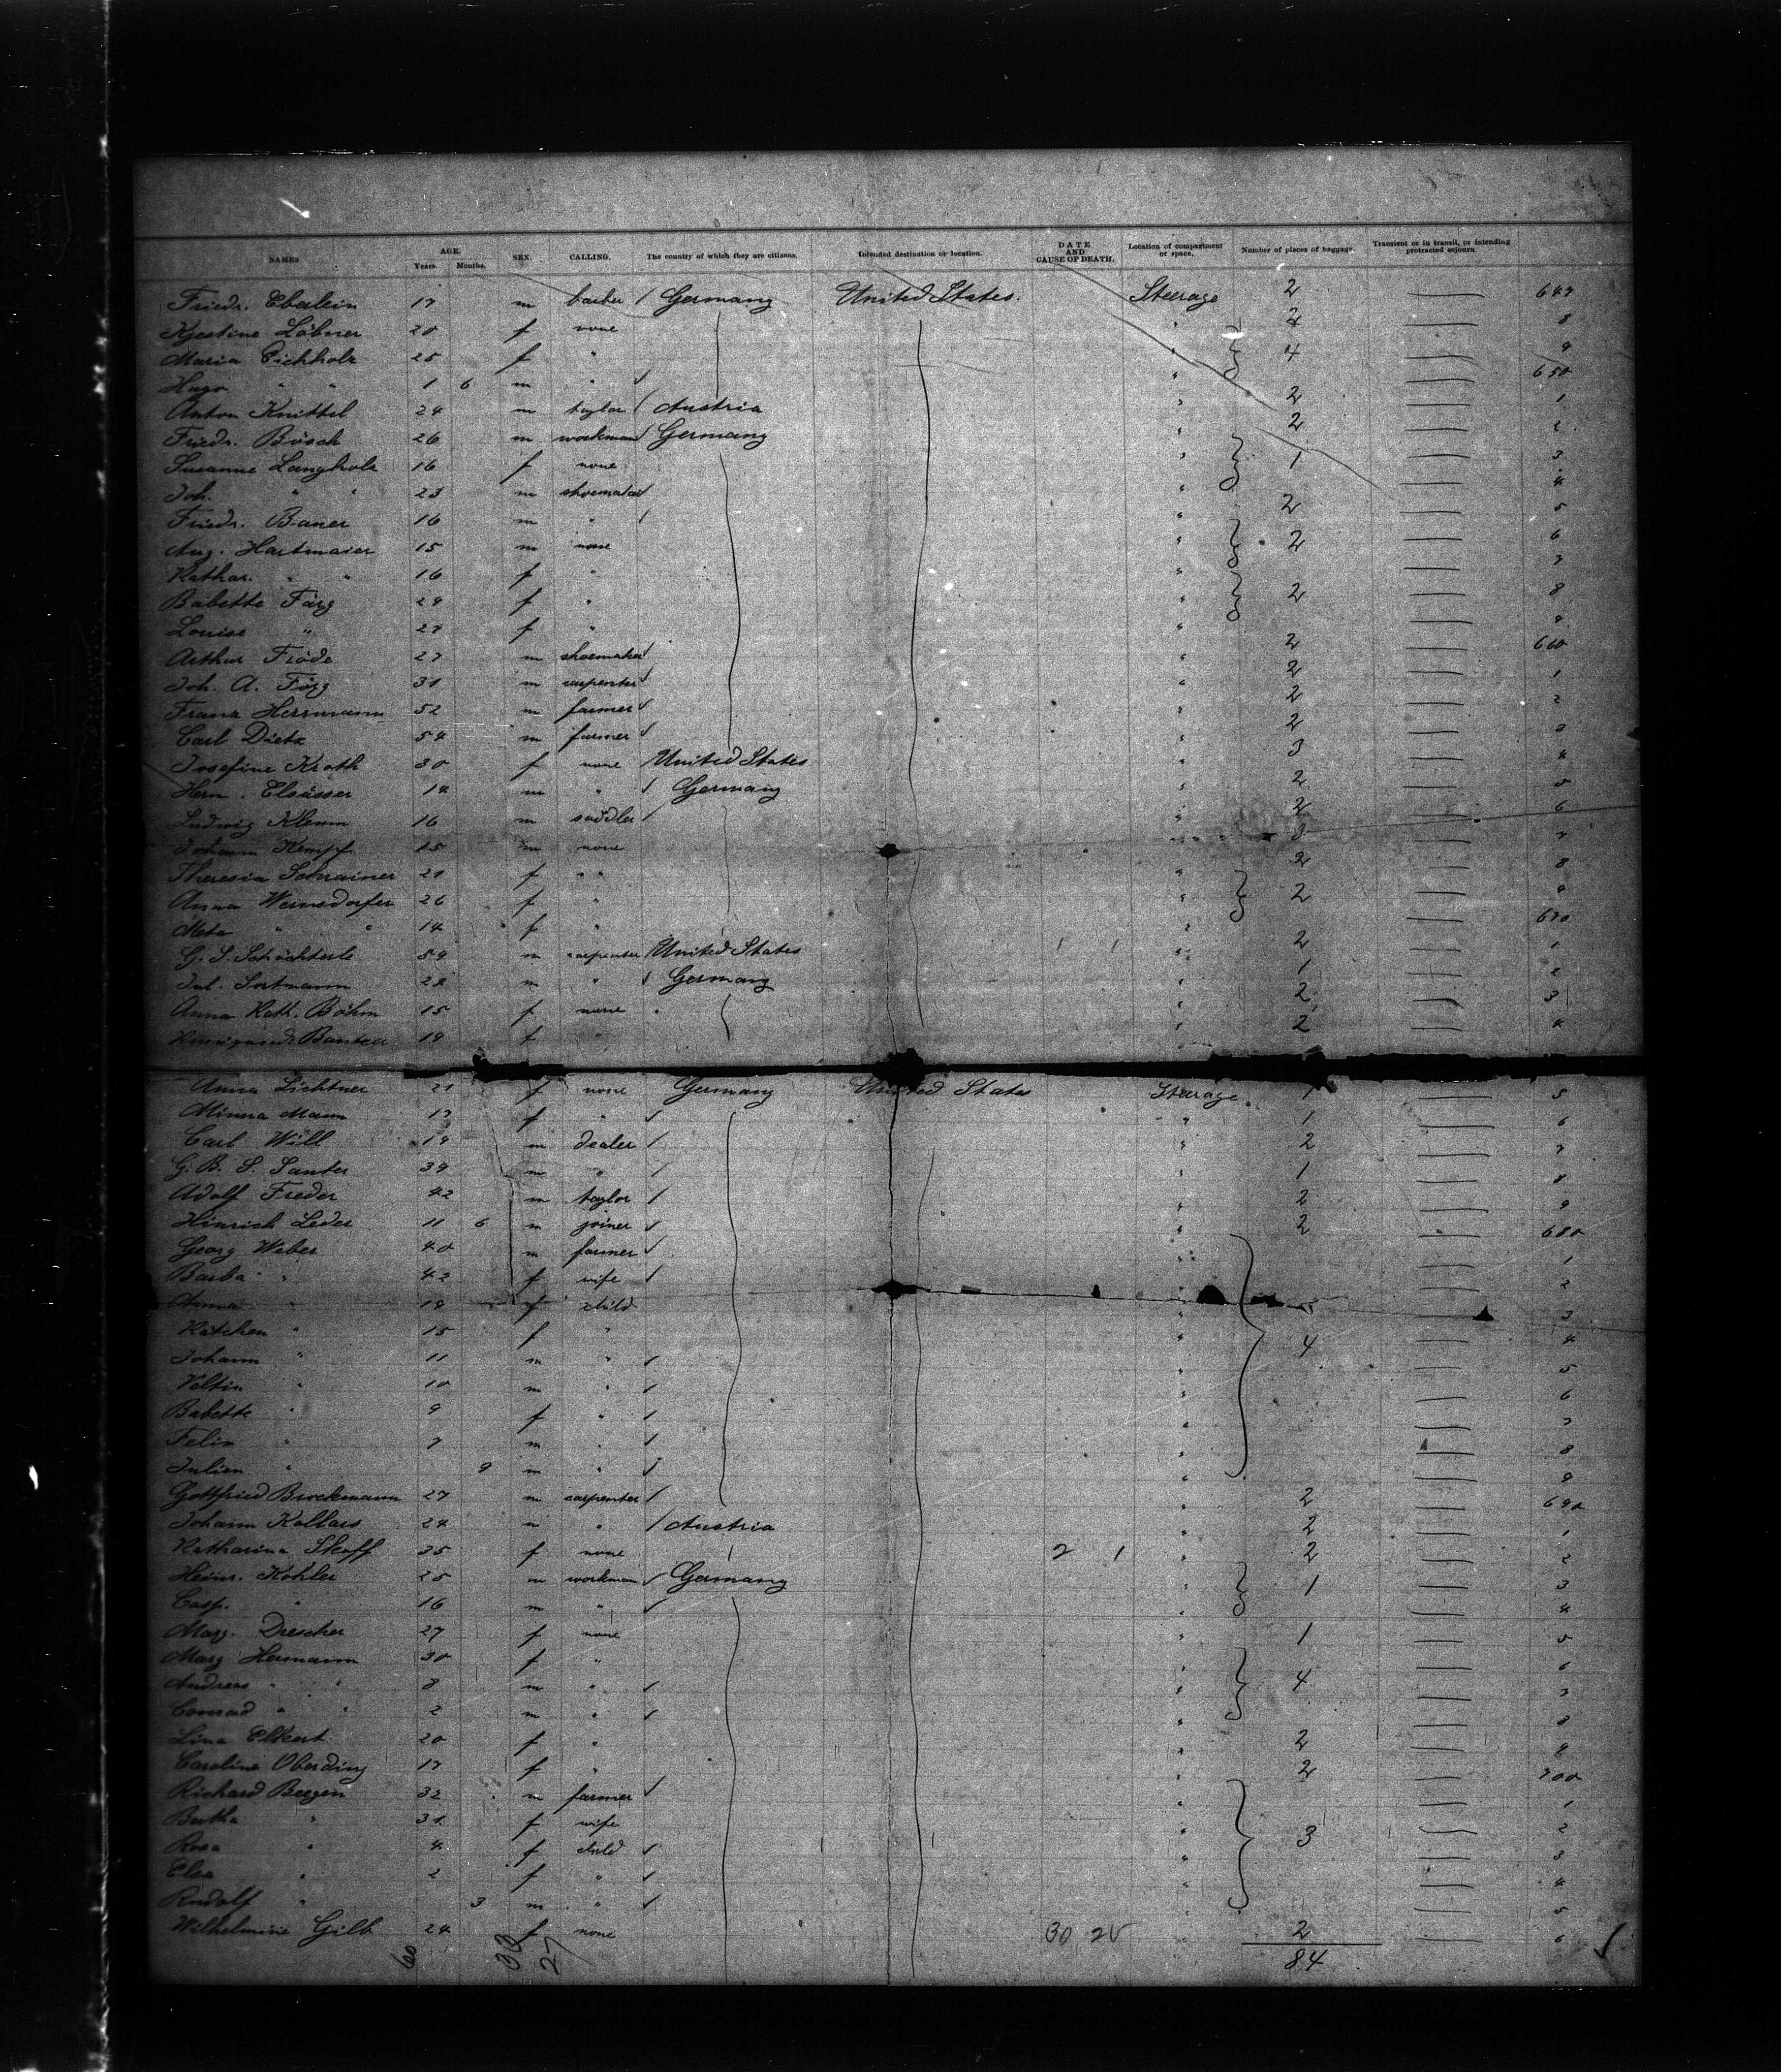 NAMES AGE. Years. Months. SEX. CALLING. The country of which they are citizens. Intended destination or location. DATE AND CAUSE OF DEATH. Location of compartment or space. Number of pieces of baggage. Transient or in transit, or intending protracted sojourn
Friedr. Eberlein 17 m barber / Germany United States. Steerage 2 647
Kjestine Löbner 20 f none " 2 8
Maria Eichholz 25 f " " 4 9
Hugo " " 1 6 m " " 650
Anton Knittel 24 m taylor / Austria " 2 1
Friedr. Bösch 26 m workman / Germany " 2 2
Susanne Langholz 16 f none " 1 3
Joh. " " 23 m shoemaker " 4
Friedr. Baner 16 m " " 2 5
Aug. Hartmaier 15 m none " 2 6
Kathar. " " 16 f " " 7
Babette Färg 29 f " " 2 8
Louise " 27 f " " 9
Arthur Fröde 27 m shoemaker " 2 660
Joh. A. Färg 31 m carpenter " 2 1
Franz Herrmann 52 m farmer " 2 2
Carl Dietz 54 m farmer " 2 3
Josefine Kroth 30 f none United States " 3 4
Herm. Elsässer 14 m " / Germany " 2 5
Ludwig Klemm 16 m saddler " 2 6
Johann Kempf 15 m none " 3 7
Theresia Schrainer 21 f " " " 2 8
Anna Wernsdorfer 26 f " " 2 9
Meta " " 14 f " " 670
G. S. Schöchterle 59 m carpenter United States " 2 1
Jul. Sortmann 28 m " / Germany " 1 2
Anna Kath. Böhm 15 f none " 2 3
19 f " " 2 4
Anna Lichtner 21 f none Germany United States Steerage 1 5
Minna Mann 17 f " " 1 6
Carl Will 19 m dealer / " 2 7
G. B. S. Santer 39 m " / " 1 8
Adolf Freder 42 m taylor / " 2 9
Hinrich Leder 11 6 m joiner " 2 680
Georg Weber 40 m farmer " 1
Barba " 42 f wife " 2
Anna " 18 f child " 3
Kätchen " 15 f " " 4 4
Johann " 11 m " " 5
Veltin " 10 m " " 6
Babette " 9 f " " 7
Felix " 7 m " " 8
Julien " 9 m " " 9
Gottfried Brockmann 27 m carpenter / " 2 690
Johann Kollars 24 m " / Austria " 2 1
Katharina Skoff 35 f none 2 1 " 2 2
Heinr. Köhler 25 m workman Germany " 1 3
Casp. " 16 m " " 4
Marg. Drescher 27 f none " 1 5
Marg Hermann 30 f " " 6
Andreas " " 8 m " " 4 7
Conrad " " 2 m " " 8
Lina Elkert 20 f " " 2 9
Caroline Oberding 17 f " " 2 700
Richard Beegen 32 m farmer " 1
Bertha " 31 f wife " 2
Rosa " 4 f child " 3 3
Elsa " 2 f " " 4
Rudolf " 3 m " " 5
Wilhelmine Gilb 24 f none 30 20 " 2 6
60 33 27 84